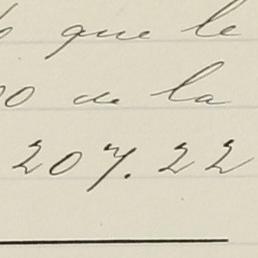 que le
de la
207.22